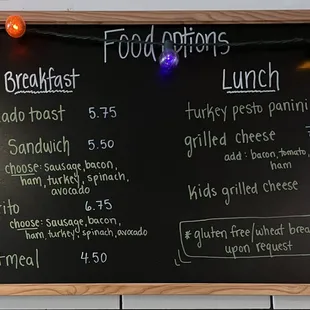 Food options
Breakfast
ado toast 5.75
Sandwich 5.50
choose: sausage, bacon,
ham, turkey, spinach,
avocado
ito 6.75
choose: sausage, bacon,
ham, turkey, spinach, avocado
meal 4.50
Lunch
turkey pesto panini
grilled cheese
add: bacon, tomato,
ham
kids grilled cheese
* gluten free/wheat brea
upon request